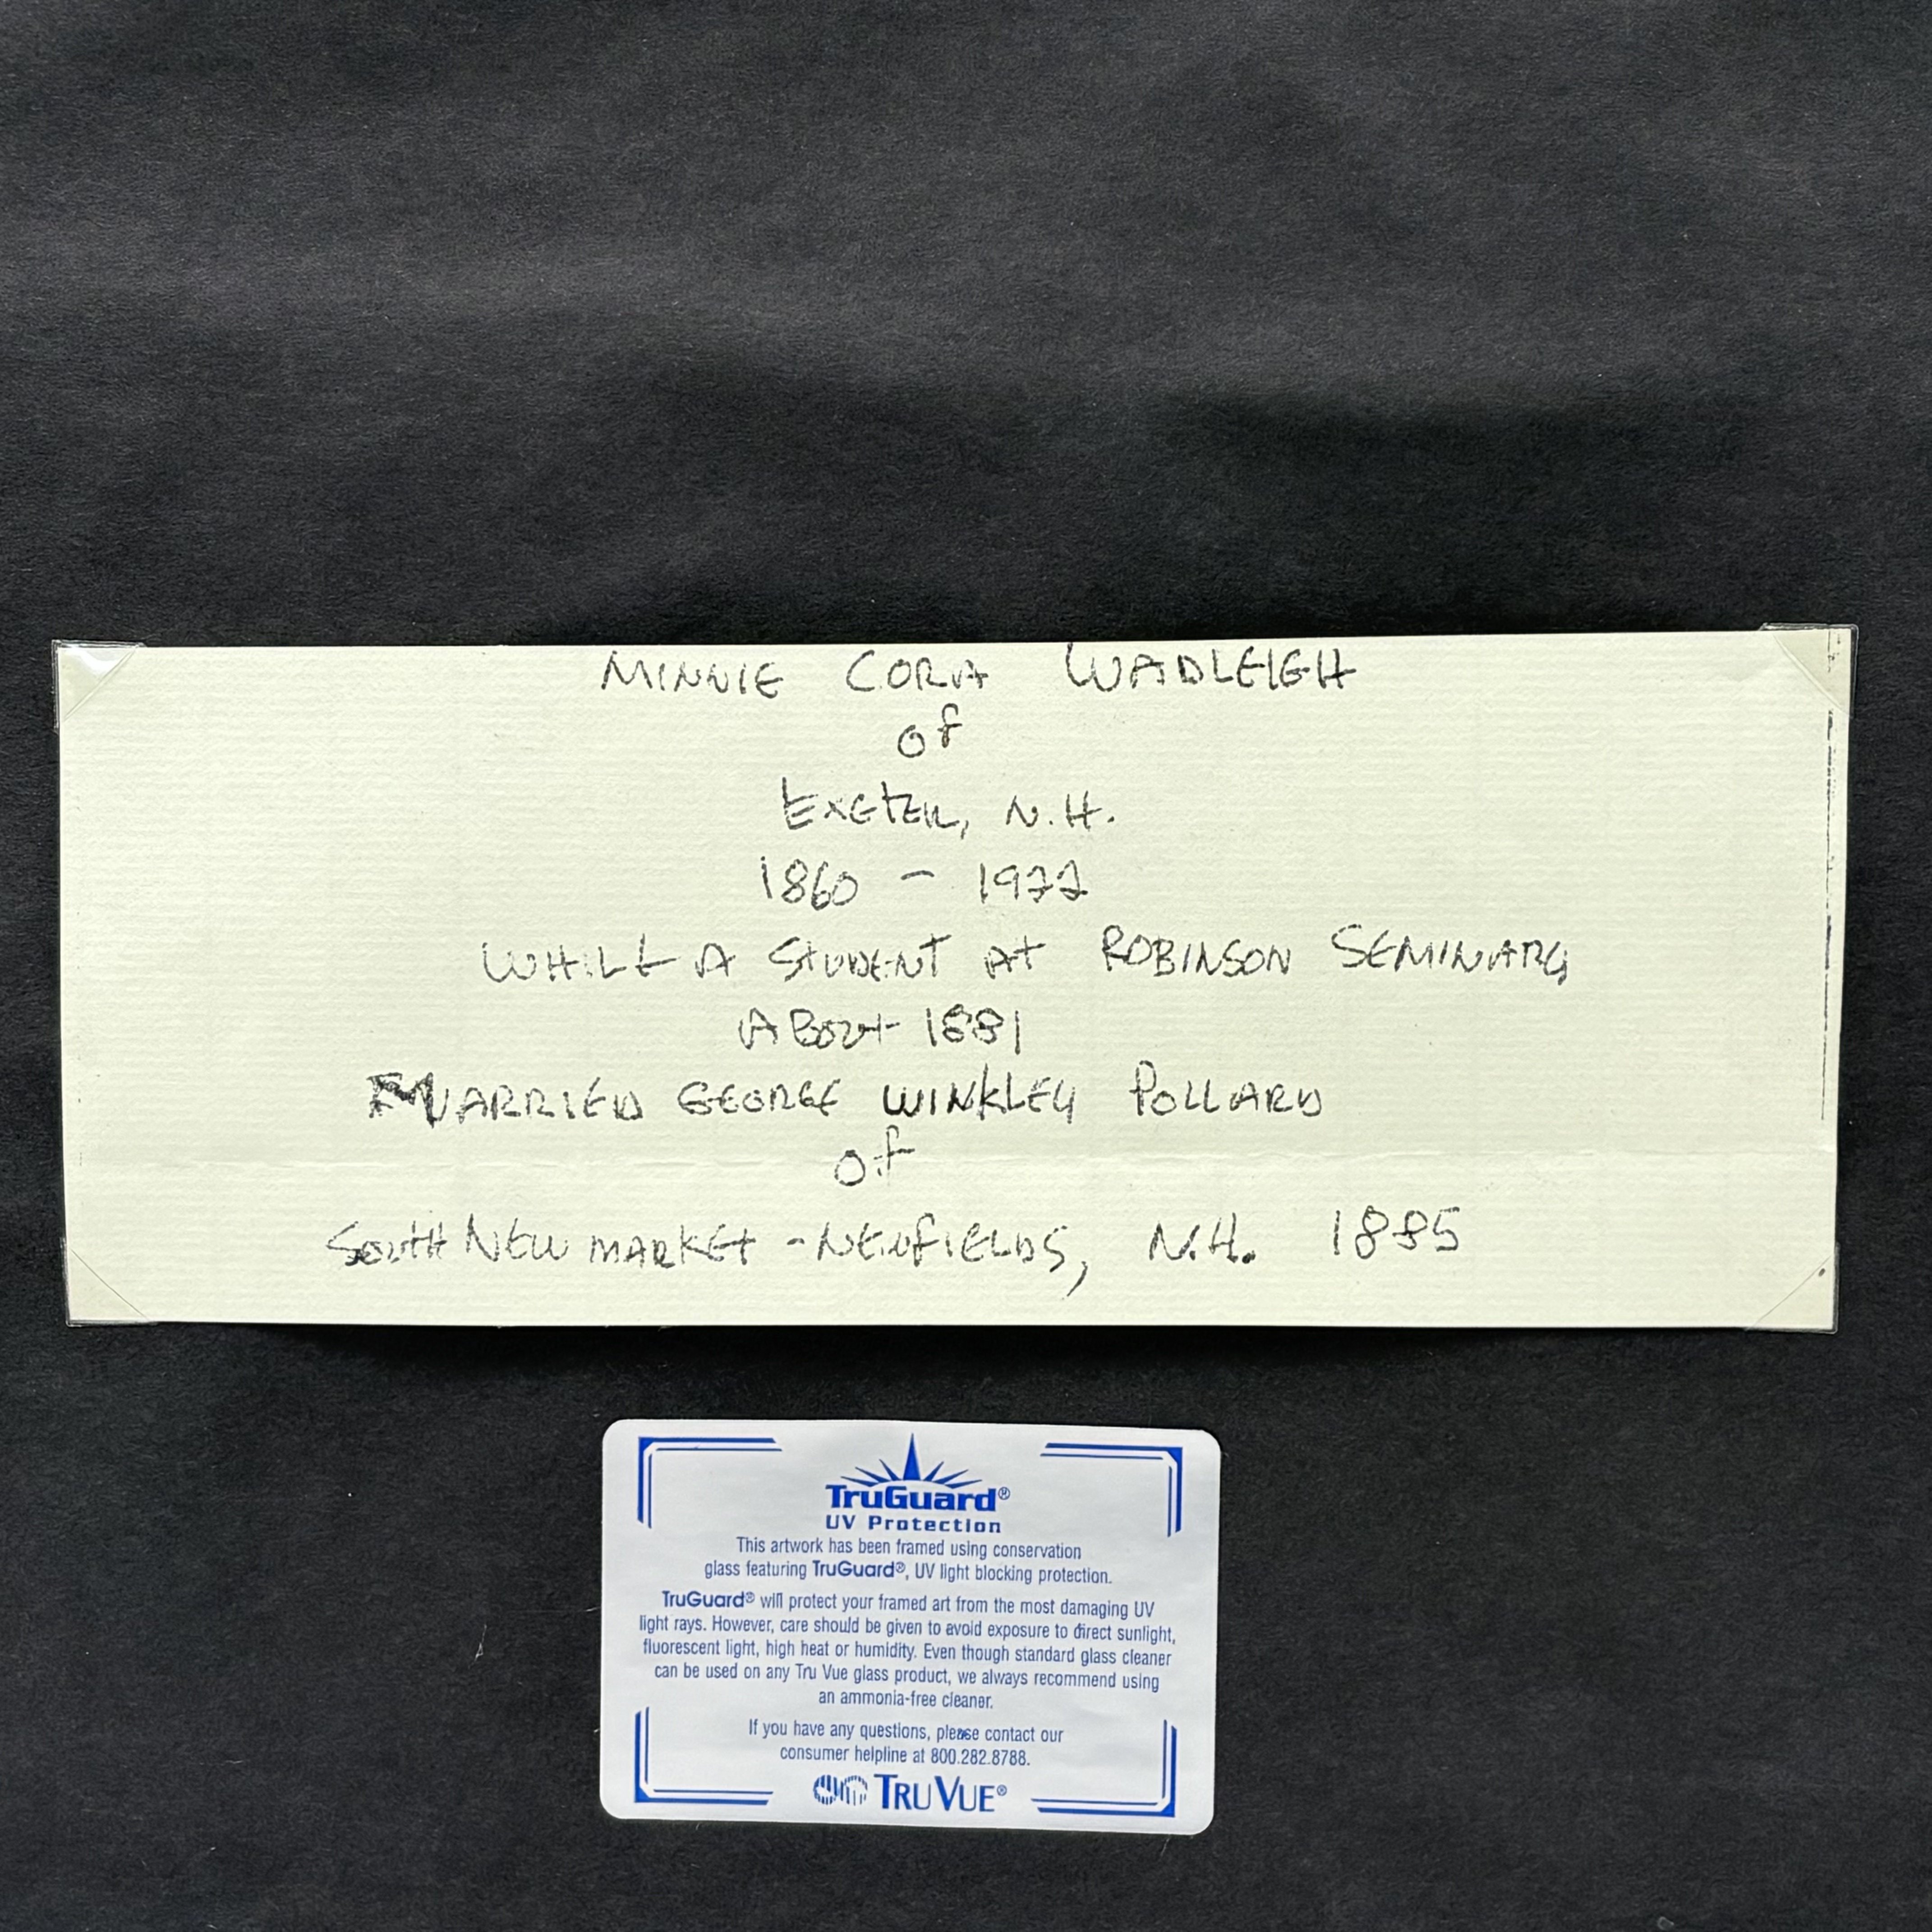 MINNIE CORA WADLEIGH
of
EXETER, N.H.
1860 -
WHILE A STUDENT AT ROBINSON SEMINARY
ABOUT 1881
MARRIED GEORGE WINKLEY POLLARD
of
SOUTH NEWMARKET - NEWFIELDS, N.H. 1885
TruGuard®
UV Protection
This artwork has been framed using conservation
glass featuring TruGuard®, UV light blocking protection.
TruGuard® will protect your framed art from the most damaging UV
light rays. However, care should be given to avoid exposure to direct sunlight,
fluorescent light, high heat or humidity. Even though standard glass cleaner
can be used on any Tru Vue glass product, we always recommend using
an ammonia-free cleaner.
If you have any questions, please contact our
consumer helpline at 800.282.8788.
TRU VUE®